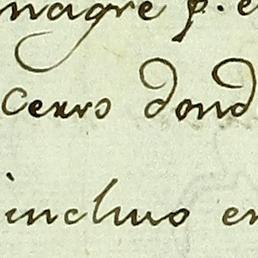 magre p. e
cerro dond
incluso en